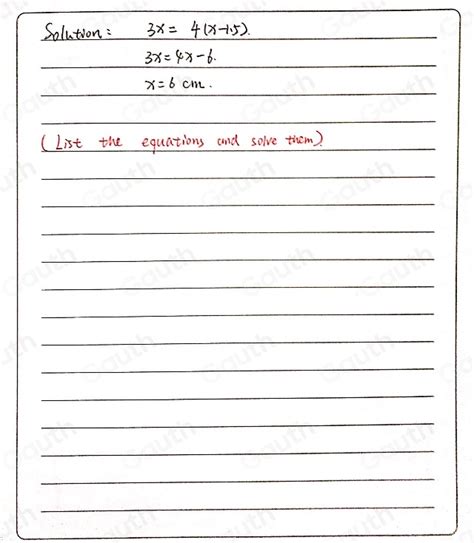 Solution: 3x = 4(x-1.5).
3x = 4x - 6.
x = 6 cm.
(List the equations and solve them)
Gauth